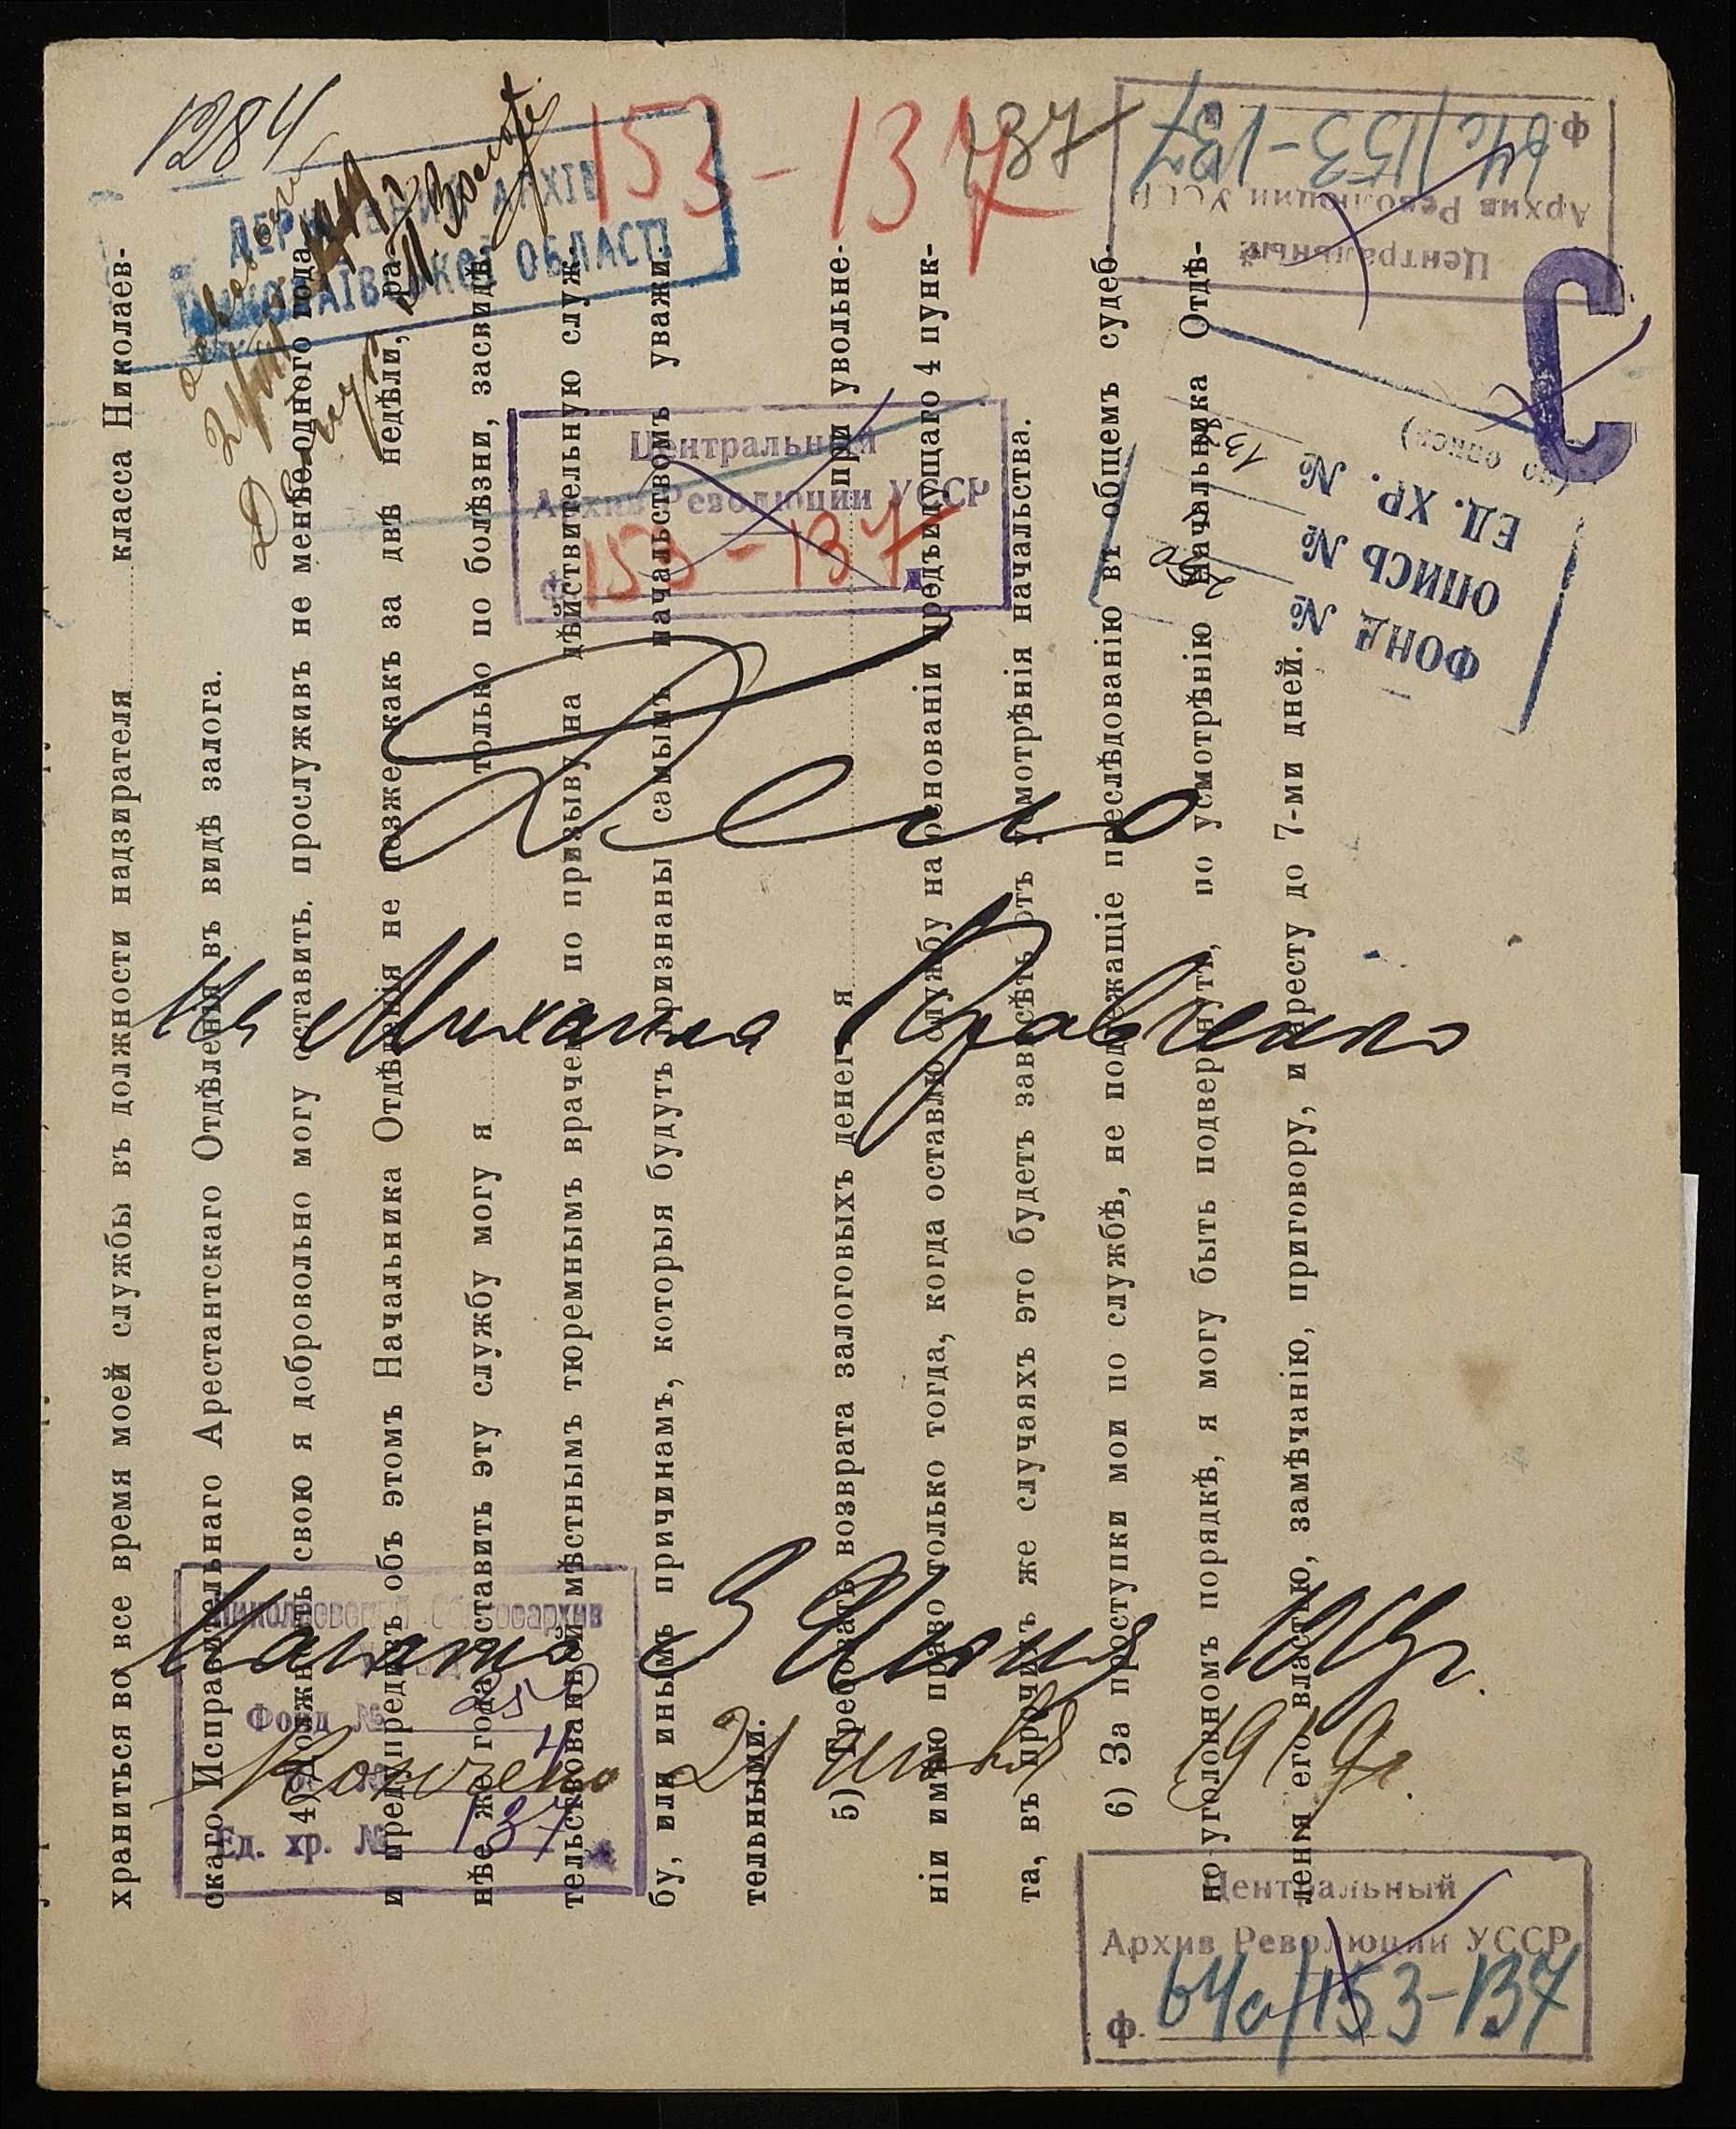 1284
ДЕРЖАВНИЙ АРХІВ
МИКОЛАЇВСЬКОЇ ОБЛАСТІ
153-137
787
Центральный
Архив Революции УССР
ф. 64с/153-137
Центральный
Архив Революции УССР
ф. 153-137
ФОНД №
ОПИСЬ №
ЕД. ХР. № 13
(по описи)
Дело
Михаила Кравченко
Начато 3 Июня 1919г.
Кончено 21 июля 1919г.
Николаевский Облгосархив
Фонд №
4
Ед. хр. № 137
Центральный
Архив Революции УССР
ф. 64с/153-137
храниться во все время моей службы въ должности надзирателя класса Николаев-
скаго Исправительнаго Арестантскаго Отдѣленія въ видѣ залога.
4) Должность свою я добровольно могу оставить, прослуживъ не менѣе одного года
и предупредивъ объ этомъ Начальника Отдѣленія не позже какъ за двѣ недѣли, ра-
нѣе же года оставить эту службу могу я только по болѣзни, засвидѣ-
тельствованной мѣстнымъ тюремнымъ врачемъ, по призыву на дѣйствительную служ-
бу, или инымъ причинамъ, которыя будутъ признаны самымъ начальствомъ уважи-
тельными.
5) Требовать возврата залоговыхъ денегъ я при увольне-
ніи имѣю право только тогда, когда оставлю службу на основаніи предъидущаго 4 пунк-
та, въ прочихъ же случаяхъ это будетъ зависѣть отъ усмотрѣнія начальства.
6) За проступки мои по службѣ, не подлежащіе преслѣдованію въ общемъ судеб-
но-уголовномъ порядкѣ, я могу быть подвергнутъ, по усмотрѣнію Начальника Отдѣ-
ленія его властью, замѣчанію, приговору, и аресту до 7-ми дней.